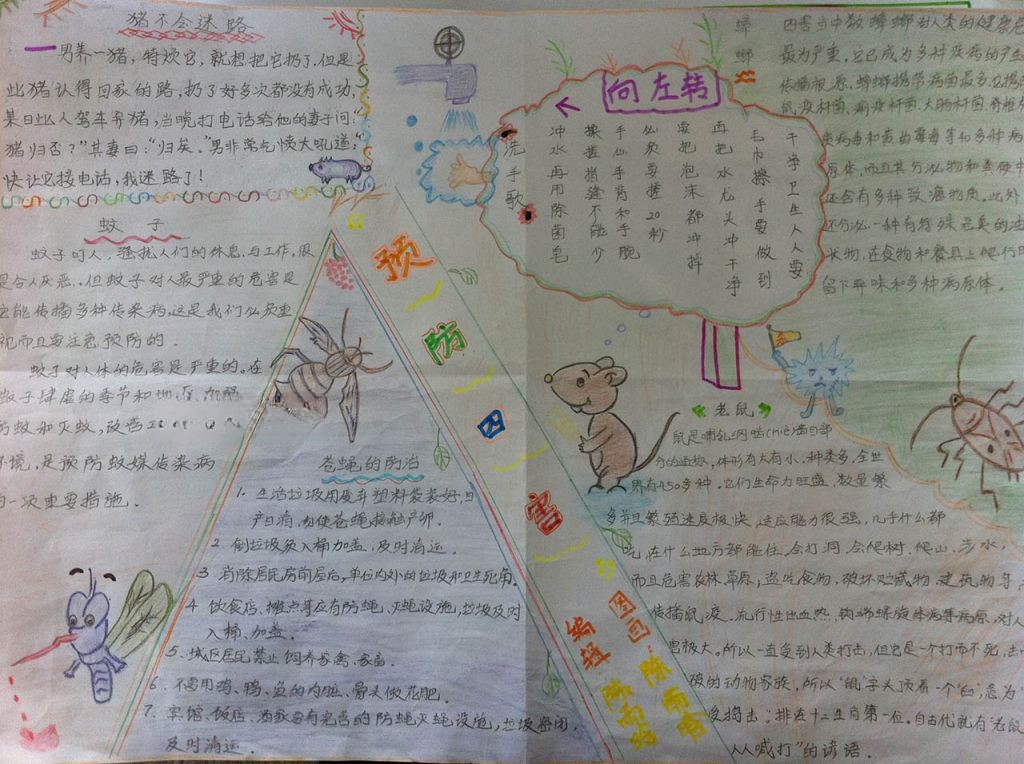 猪不会迷路
一男养一猪,特烦它,就想把它扔了.但是
此猪认得回家的路,扔了好多次都没有成功,
某日此人驾车弃猪,当晚打电话给他的妻子问:"
猪归否?"其妻曰:"归矣."男非常气愤大吼道:"
快让它接电话,我迷路了!
蚊子
蚊子叮人,骚扰人们的休息.与工作,很
是令人厌恶.但蚊子对人最严重的危害是
它能传播多种传染病.这是我们必须重
视而且要注意预防的.
蚊子对人体的危害是严重的.在
蚊子肆虐的季节和地区,
防蚊和灭蚊,改善
环境,是预防蚊媒传染病
的一项重要措施.
预防四害
图画:陈雨晗
编辑 陈雨晗
苍蝇的防治
1.生活垃圾用废弃塑料袋装好,日
产日消,勿使苍蝇接触产卵.
2.倒垃圾袋入桶加盖,及时清运.
3.消除居民房前屋后,单位内外的垃圾和卫生死角.
4.饮食店、摊点等应有防蝇、灭蝇设施,垃圾及时
入桶、加盖.
5.城区居民禁止饲养家禽、家畜.
6.不要用鸡、鸭、鱼的内脏、骨头做花肥.
7.宾馆、饭店、酒家要有完善的防蝇灭蝇设施,垃圾密闭,
及时清运.
向左转
洗手歌
干净卫生人人要
毛巾擦手要做到
再把水龙头冲干净
要把泡沫都冲掉
必须要搓20秒
手心手背和手腕
揉搓指缝不能少
冲水再用除菌皂
蟑螂
四害当中数蟑螂对人类的健康危
最为严重,它已成为多种疾病的产生
传播根源.蟑螂携带病菌最多包括
鼠疫杆菌,痢疾杆菌,大肠杆菌
类病毒和黄曲霉毒等40多种病
原体,而且其分泌物和粪便中
还含有多种致癌物质.此外
还分泌一种有特殊恶臭的油
状物,在食物和餐具上爬行
留下异味和多种病原体.
老鼠
鼠是哺乳纲啮(niè)齿目部
分的动物,体形有大有小,种类多,全世
界有450多种,它们生命力旺盛,数量繁
多并且繁殖速度极快,适应能力很强,几乎什么都
吃,在什么地方都能住,会打洞、会爬树,爬山,涉水,
而且危害农林、草原;盗吃食物,破坏贮藏物、建筑物等,
传播鼠疫.流行性出血热,钩端螺旋体病等病原,对人
害极大。所以一直受到人类打击,但它是一个打而不死,击
破的动物家族,所以"鼠"字头顶着一个"臼",意为
受捣击;排在十二生肖第一位.自古代就有"老鼠
人人喊打"的谚语.